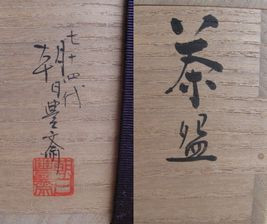 茶盌
七十四代
朝日豊斎